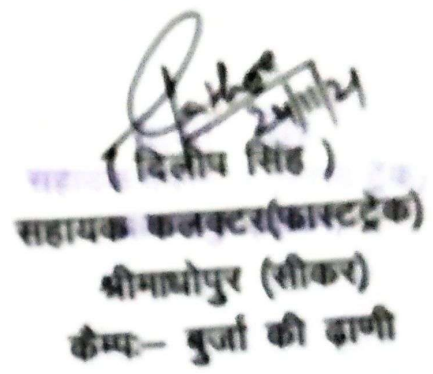 24/11/21
( दिलीप सिंह )
सहायक कलक्टर(फास्टट्रेक)
श्रीमाधोपुर (सीकर)
कैम्पः– बुर्जा की ढ़ाणी